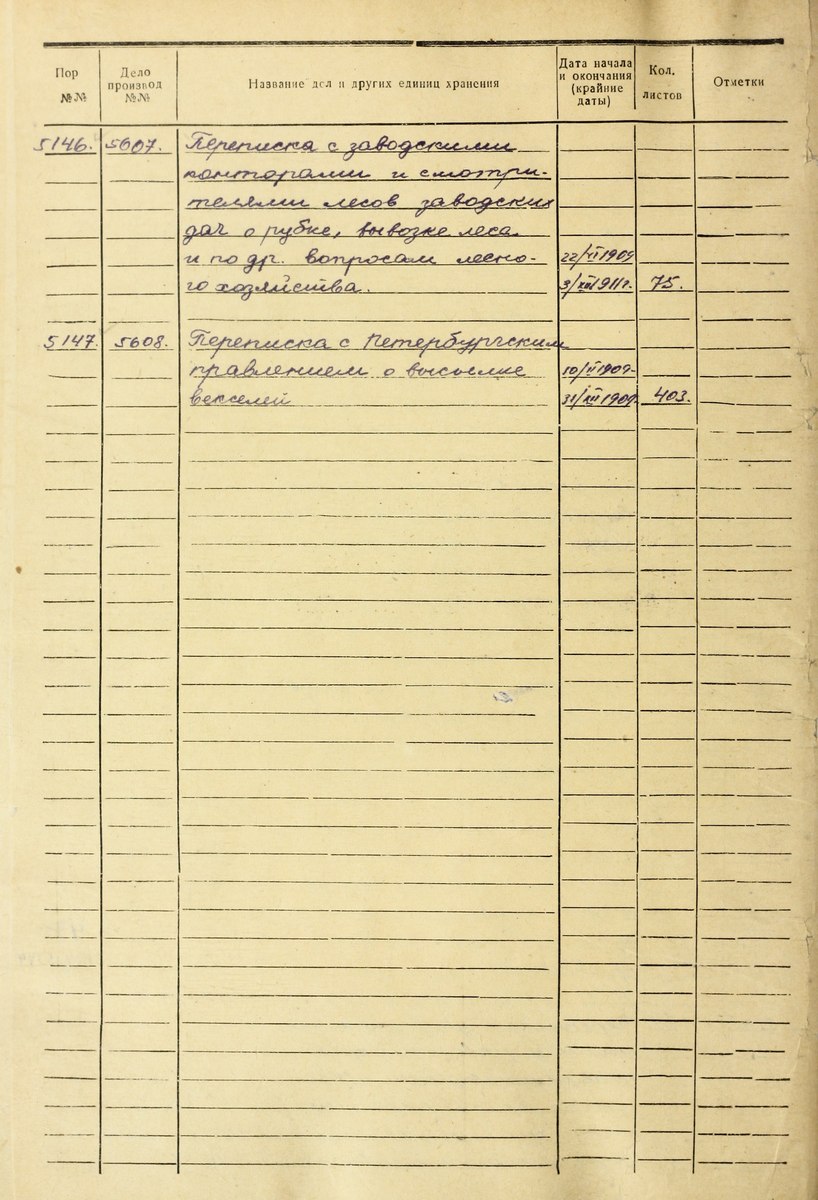 Пор №№
Дело производ №№
Название дел и других единиц хранения
Дата начала и окончания (крайние даты)
Кол. листов
Отметки
5146. 5607. Переписка с заводскими
конторами и смотри-
телями лесов заводских
дач о рубке, вывозке леса
и по др. вопросам лесно- 22/VI 1909
го хозяйства. 3/XII 1911г. 75.
5147. 5608. Переписка с Петербургским
правлением о высылке 10/II 1909-
векселей 31/XII 1909. 403.